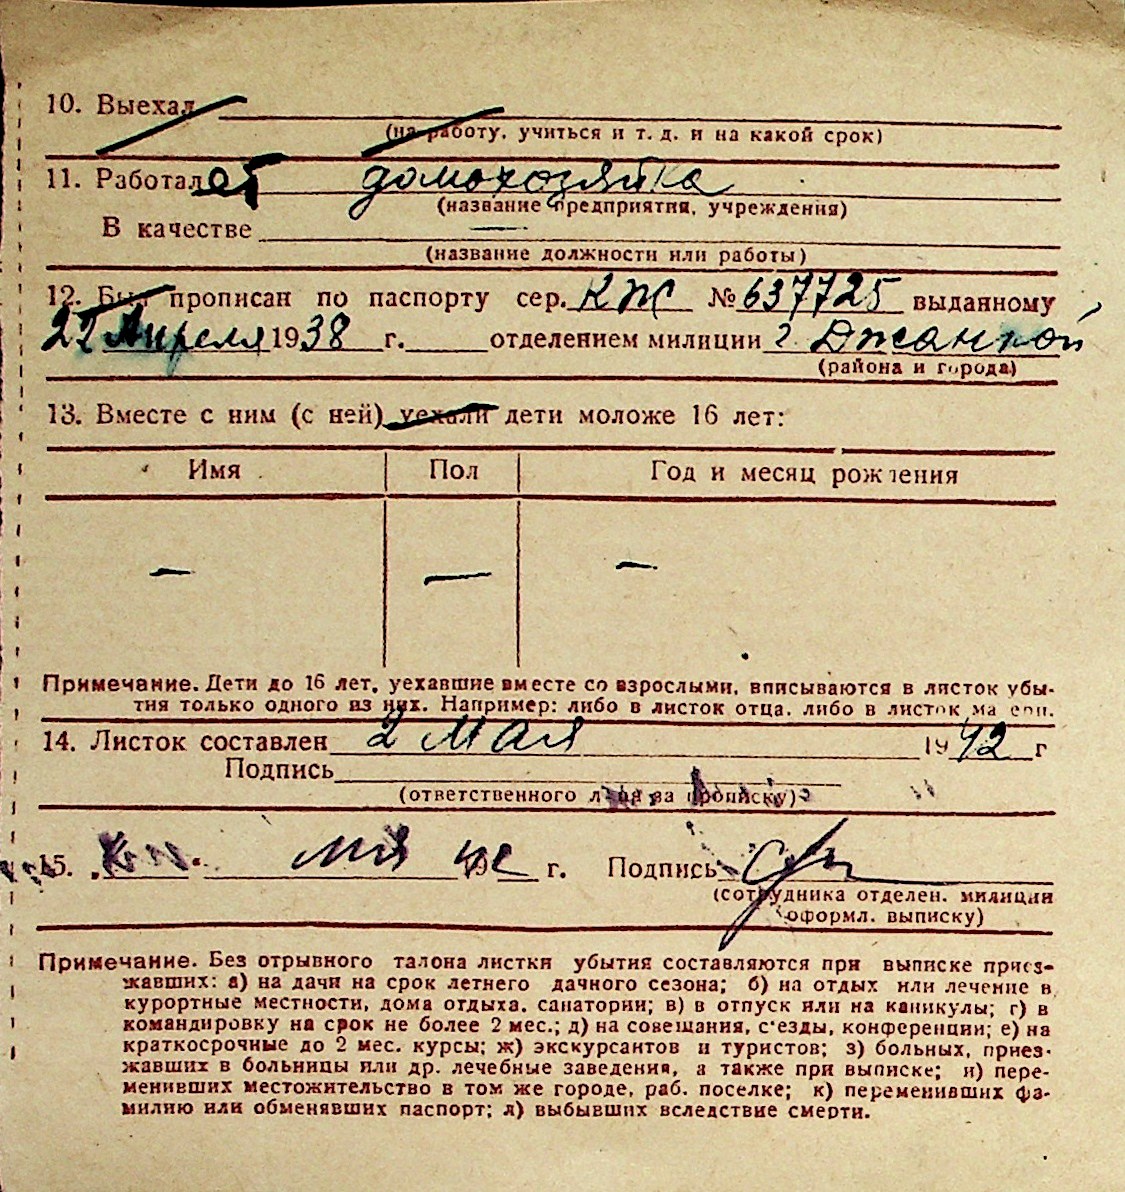 10. Выехал
(на работу, учиться и т. д. и на какой срок)
11. Работалает домохозяйка
(название предприятия, учреждения)
В качестве —
(название должности или работы)
12. Был прописан по паспорту сер. КЖ № 637725 выданному
22 Апреля 1938 г. отделением милиции г. Джанкой
(района и города)
13. Вместе с ним (с ней) уехали дети моложе 16 лет:
Имя Пол Год и месяц рождения
— — —
Примечание. Дети до 16 лет, уехавшие вместе со взрослыми, вписываются в листок убы-
тия только одного из них. Например: либо в листок отца, либо в листок матери.
14. Листок составлен 2 Мая 1942 г
Подпись
(ответственного лица за прописку)
15. мая 42 г. Подпись
(сотрудника отделен. милиции
оформл. выписку)
Примечание. Без отрывного талона листки убытия составляются при выписке приез-
жавших: а) на дачи на срок летнего дачного сезона; б) на отдых или лечение в
курортные местности, дома отдыха, санатории; в) в отпуск или на каникулы; г) в
командировку на срок не более 2 мес.; д) на совещания, с'езды, конференции; е) на
краткосрочные до 2 мес. курсы; ж) экскурсантов и туристов; з) больных, приез-
жавших в больницы или др. лечебные заведения, а также при выписке; и) пере-
менивших местожительство в том же городе, раб. поселке; к) переменивших фа-
милию или обменявших паспорт; л) выбывших вследствие смерти.